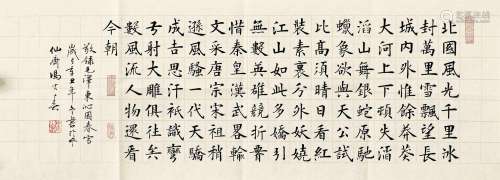 北國風光千里冰
封萬里雪飄望長
城內外惟餘莽莽
大河上下頓失滔
滔山舞銀蛇原馳
蠟象欲與天公試
比高須晴日看紅
裝素裹分外妖嬈
江山如此多嬌引
無數英雄競折腰
惜秦皇漢武略輸
文采唐宗宋祖稍
遜風騷一代天驕
成吉思汗祇識彎
弓射大雕俱往矣
數風流人物還看
今朝
敬錄毛澤東沁園春雪
辛丑年